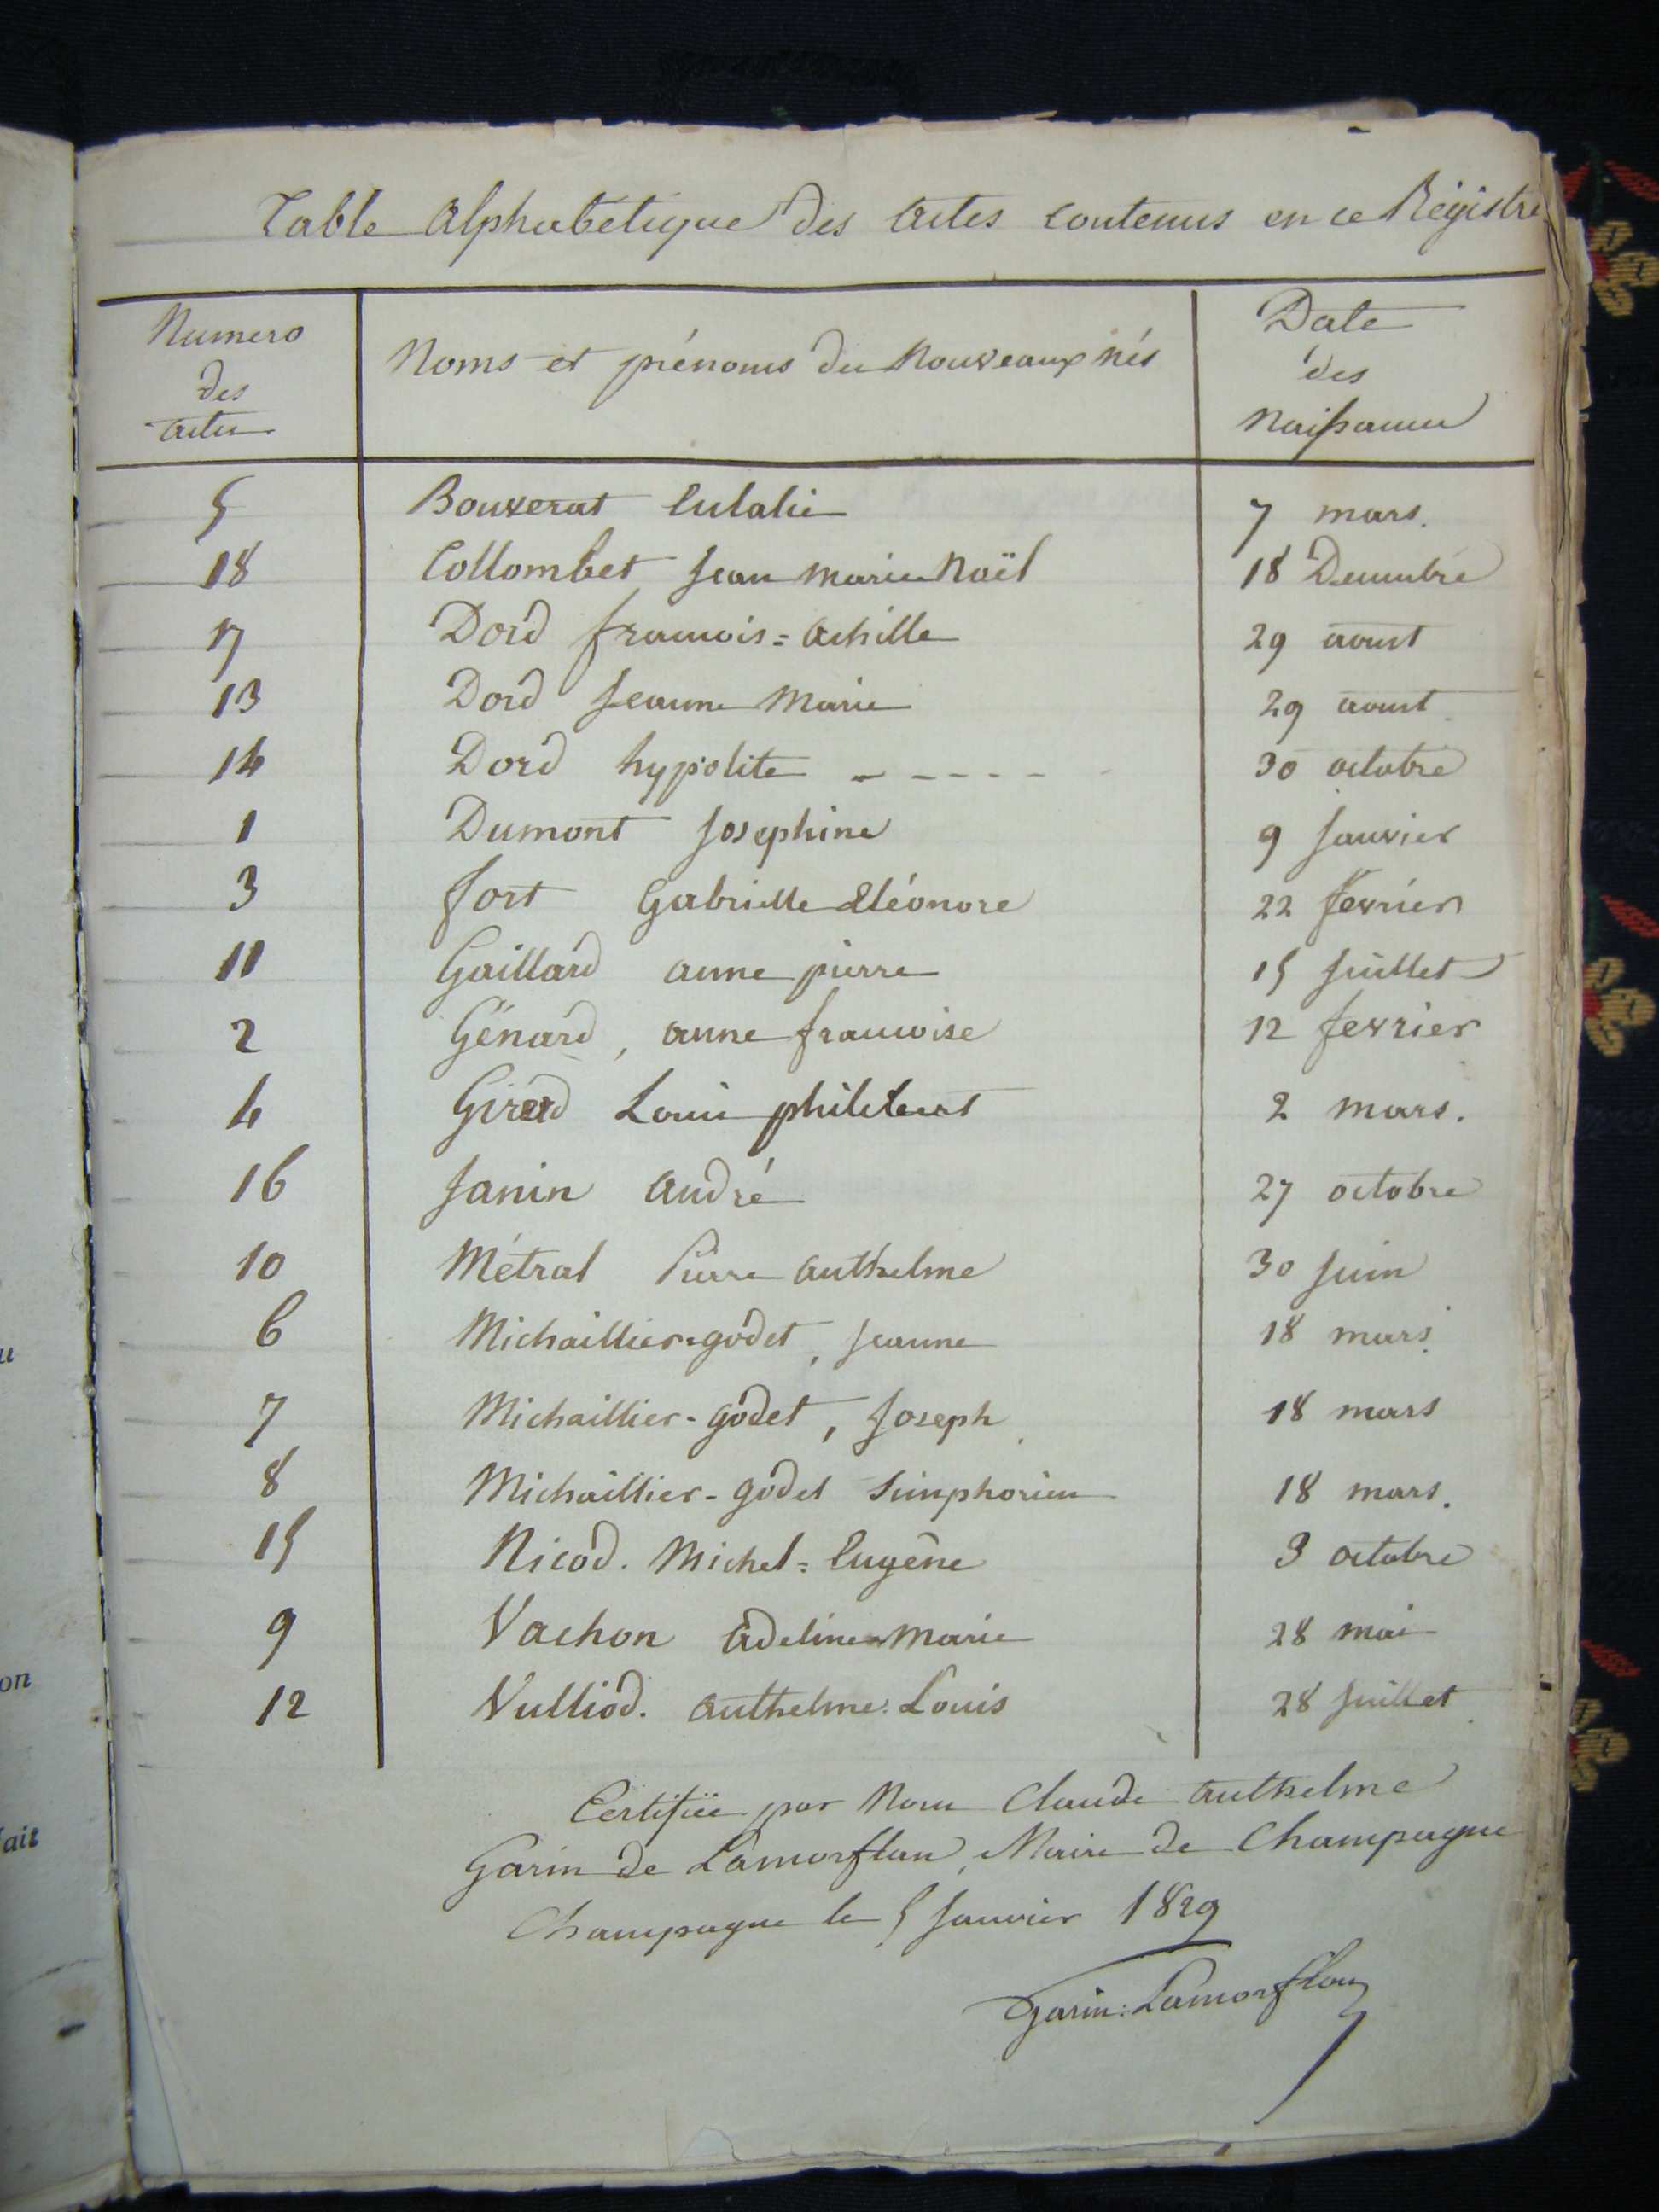 Table Alphabétique des Actes contenus en ce Régistre
Numero
des
actes
Noms et prénoms des Nouveaux nés
Date
des
Naissances
5 Bouverat Eulalie 7 mars.
18 Collombet Jean Marie Noël 18 Decembre
17 Dord françois = Achille 29 aoust
13 Dord Jeanne Marie 29 aoust
14 Dord hypolite - - - - - 30 octobre
1 Dumont Josephine 9 Janvier
3 fort Gabrielle Eléonore 22 février
11 Gaillard anne pierre 15 Juillet
2 Génard, anne françoise 12 fevrier
4 Girerd Louis philibert 2 mars.
16 Janin André 27 octobre
10 Métral Pierre Anthelme 30 Juin
6 Michaillier=godet, Jeanne 18 mars.
7 Michaillier-godet, Joseph 18 mars
8 Michaillier-godet Simphorien 18 mars.
15 Nicod. Michel = Eugène 3 octobre
9 Vachon Adeline Marie 28 mai
12 Vulliod. Anthelme. Louis 28 Juillet
Certifiée par Nous Claude Anthelme
Garin de Lamorflan, Maire de Champagne
Champagne le 5 Janvier 1829
Garin: Lamorflan
u
on
ait